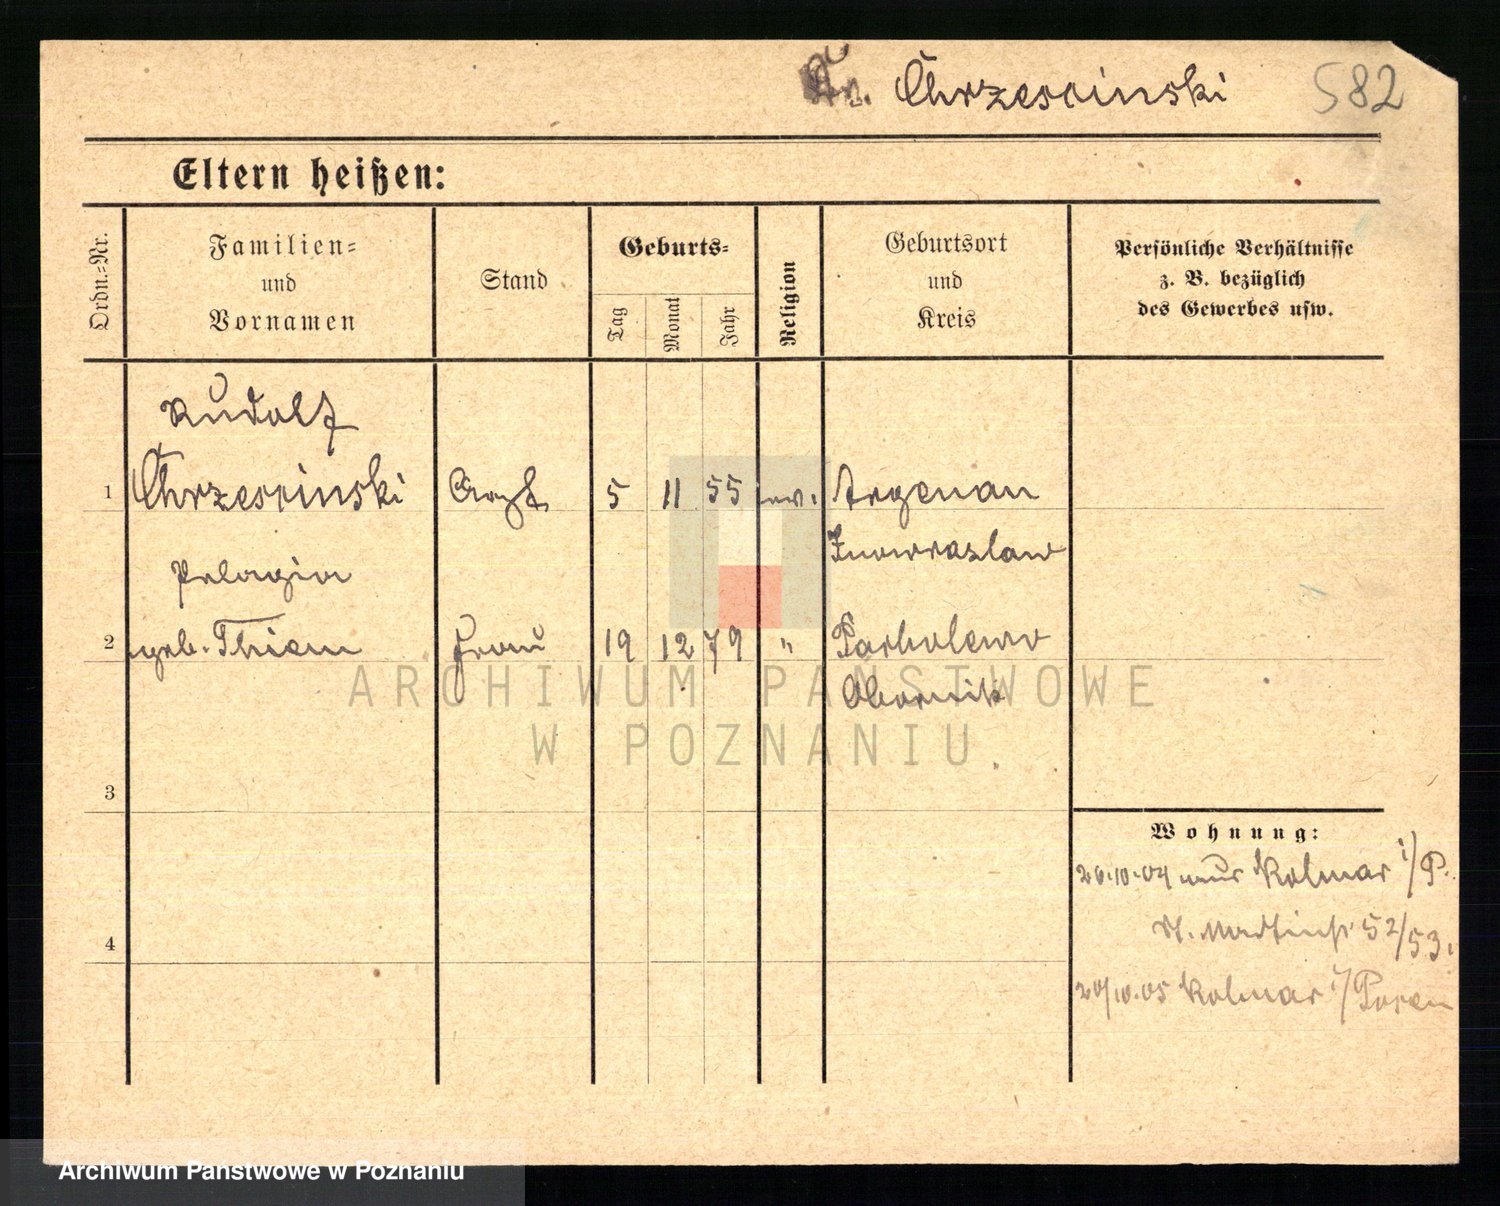 Dr. Chrzescinski 582
Eltern heißen:
Ordn.=Nr.
Familien=
und
Vornamen
Stand
Geburts=
Tag
Monat
Jahr
Religion
Geburtsort
und
Kreis
Persönliche Verhältnisse
z. B. bezüglich
des Gewerbes usw.
Rudolf
1 Chrzescinski Arzt 5 11 55 ev. Argenau
Inowrazlaw
Pelagia
2 geb. Thiem Frau 19 12 79 "
Obornik
3
4
Wohnung:
26.10.04 aus Kolmar i/P.
St. Martinstr 52/53.
20/10.05 Kolmar i/Posen
ARCHIWUM PAŃSTWOWE
W POZNANIU
Archiwum Państwowe w Poznaniu